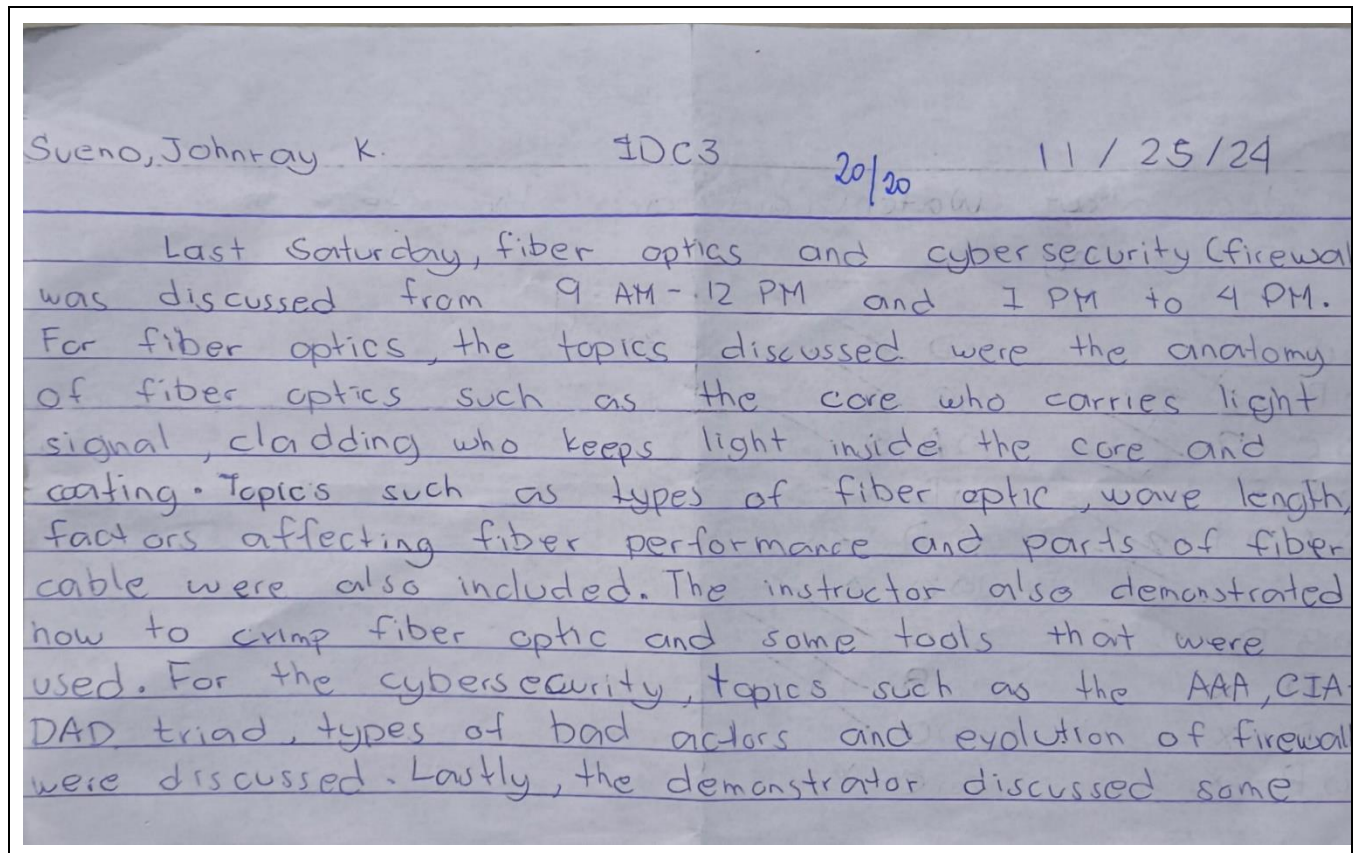 Sueno, Johnray K. 1DC3 20/20 11/25/24
Last Saturday, fiber optics and cybersecurity (firewal
was discussed from 9 AM - 12 PM and 1 PM to 4 PM.
For fiber optics, the topics discussed were the anatomy
of fiber optics such as the core who carries light
signal, cladding who keeps light inside the core and
coating. Topics such as types of fiber optic, wave length,
factors affecting fiber performance and parts of fiber
cable were also included. The instructor also demonstrated
how to crimp fiber optic and some tools that were
used. For the cybersecurity, topics such as the AAA, CIA-
DAD triad, types of bad actors and evolution of firewall
were discussed. Lastly, the demonstrator discussed some